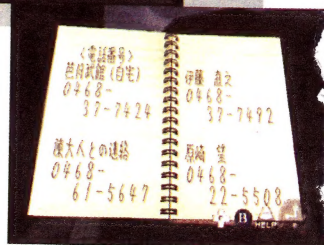 〈電話番号〉
芭月武館(自宅)
0468-
37-7424
陳大人との連絡
0468-
61-5647
伊藤 直之
0468-
37-7492
原崎 望
0468-
22-5508
B
HELP